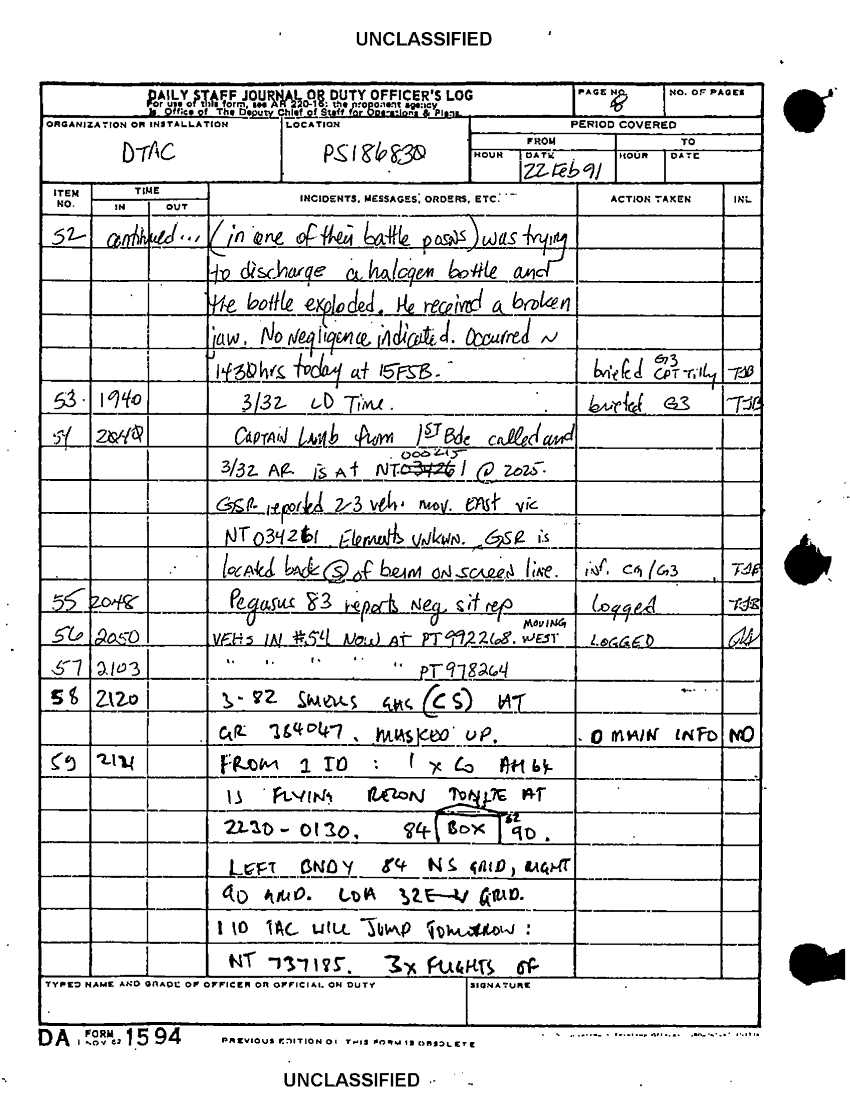 UNCLASSIFIED
DAILY STAFF JOURNAL OR DUTY OFFICER'S LOG
For use of this form, see AR 220-15; the proponent agency
is Office of The Deputy Chief of Staff for Operations & Plans.
PAGE NO. 8
NO. OF PAGES
ORGANIZATION OR INSTALLATION
DTAC
LOCATION
PS186830
PERIOD COVERED
FROM TO
HOUR DATE HOUR DATE
22 Feb 91
ITEM NO. TIME INCIDENTS, MESSAGES, ORDERS, ETC. ACTION TAKEN INL
IN OUT
52 continued... (in one of their battle posns) was trying
to discharge a halogen bottle and
the bottle exploded. He received a broken
jaw. No negligence indicated. Occurred ~
1430hrs today at 15FSB. briefed G3 CPT Tilly TJB
53. 1940 3/32 LD Time. briefed G3 TJB
54 2040 CAPTAIN Lamb from 1ST Bde called and
000215
3/32 AR is At NT034261 @ 2025.
GSR reported 2-3 veh. mov. EAST vic
NT034261 Elements UNKWN. GSR is
located back (S) of berm ON screen line. inf. CG/G3 TJB
55 2048 Pegasus 83 reports Neg sit rep logged TJB
56 2050 VEHS IN #54 NOW AT PT992268. MOVING WEST LOGGED
57 2103 " " " " " PT978264
58 2120 3-82 SMELLS GAS (CS) AT
GR 364047. MASKED UP. D MAIN INFO NO
59 2121 FROM 1 ID : 1 x Co AH64
IS FLYING RECON TONITE AT
2230-0130. 84 BOX 90.
LEFT BNDY 84 NS GRID, RIGHT
90 GRID. LOA 32E-W GRID.
1 ID TAC WILL JUMP TOMORROW:
NT 737185. 3x FLIGHTS OF
TYPED NAME AND GRADE OF OFFICER OR OFFICIAL ON DUTY
SIGNATURE
DA FORM 1 NOV 62 1594
PREVIOUS EDITION OF THIS FORM IS OBSOLETE
UNCLASSIFIED